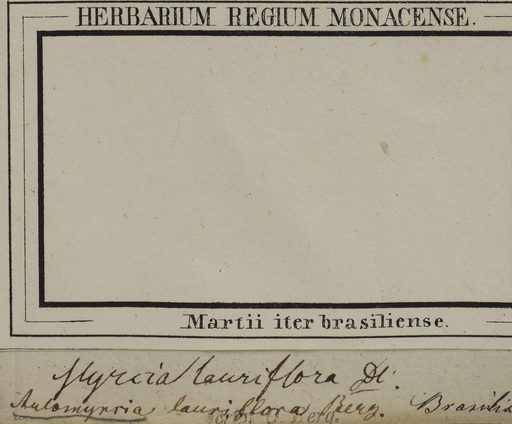 HERBARIUM REGIUM MONACENSE.
Martii iter brasiliense.
Myrcia lauriflora DC.
Aulomyrcia lauriflora Berg. Brasilia